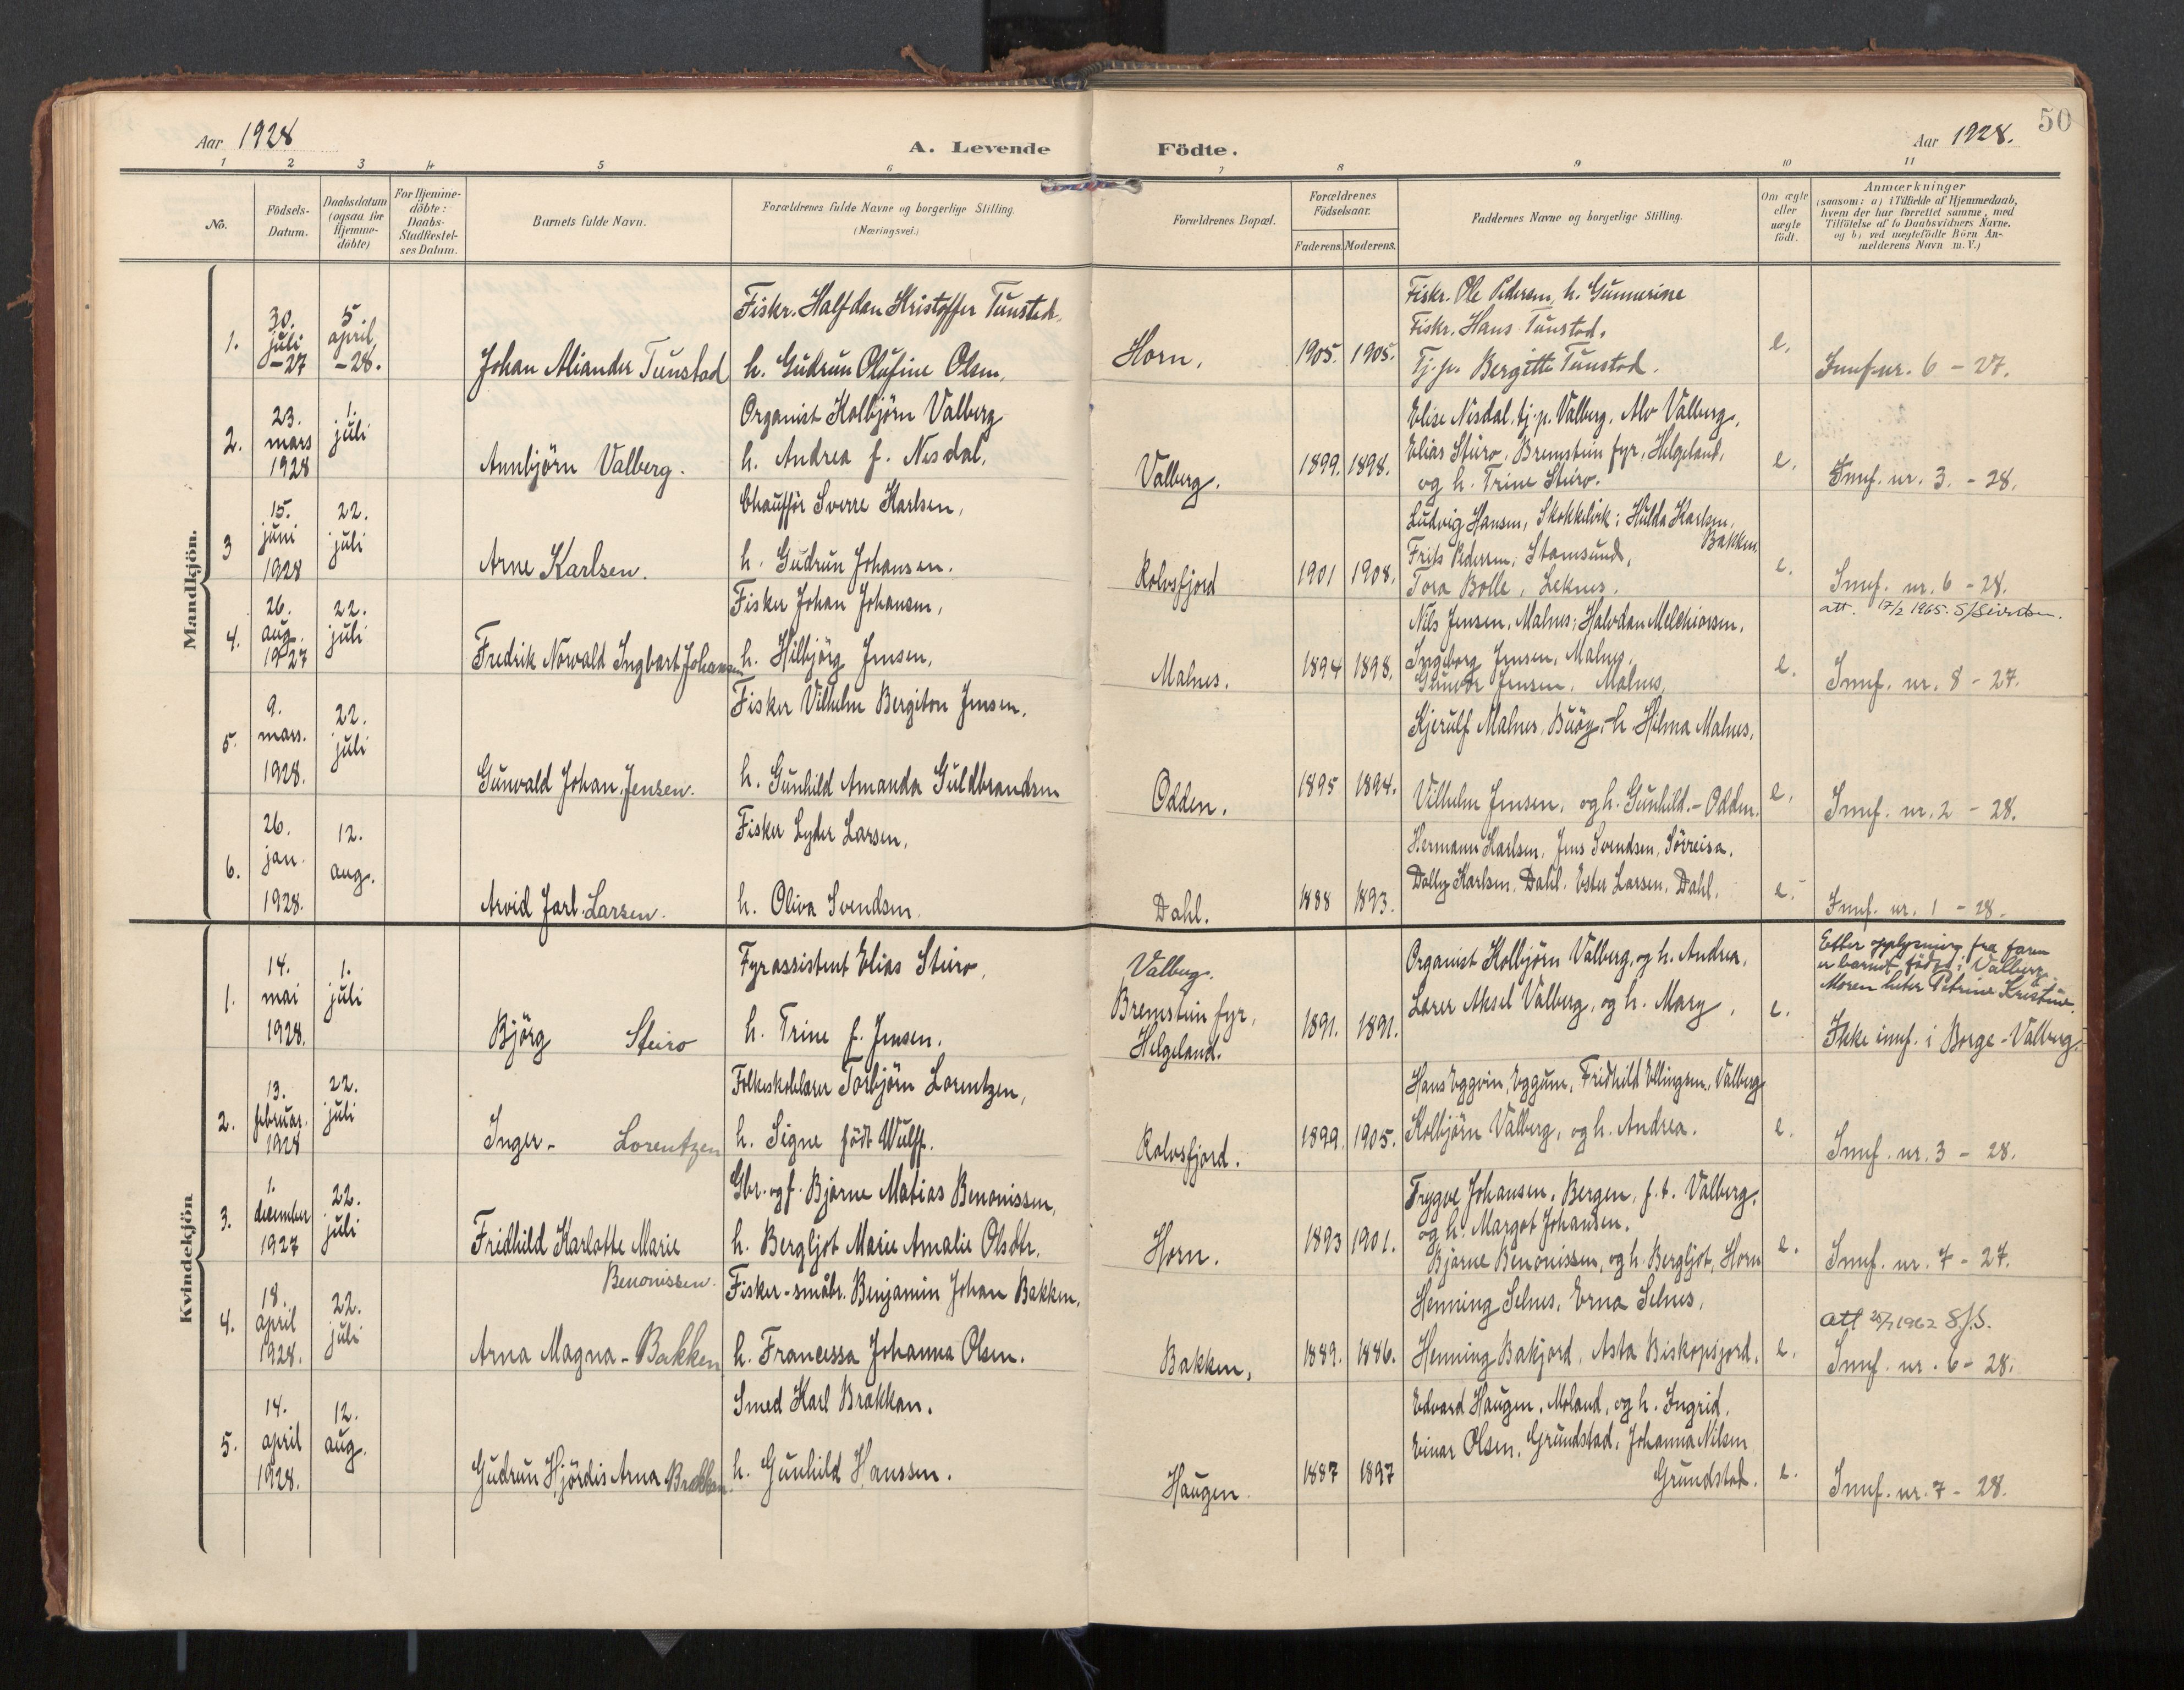 50
Aar 1928
A. Levende Födte.
Aar 1928.
1 2 3 4 5 6 7 8 9 10 11
No.
Födsels-Datum.
Daabsdatum (ogsaa for Hjemme-döbte)
For Hjemme-döbte: Daabs-Stadfæstel-ses Datum.
Barnets fulde Navn.
Forældrenes fulde Navne og borgerlige Stilling. (Næringsvei.)
Forældrenes Bopæl.
Forældrenes Födselsaar.
Faderens. Moderens.
Faddernes Navne og borgerlige Stilling.
Om ægte eller uægte födt.
Anmærkninger
(saasom: a) i Tilfælde af Hjemmedaab,
hvem der har forrettet samme, med
Tilföielse af to Daabsvidners Navne.
og b) ved uægtefödte Börn An-
melderens Navn m. V.)
Mandkjön.
1.
30. juli -27
5. april -28.
Johan Aliander Tunstad
Fiskr. Halfdan Kristoffer Tunstad.
h. Gudrun Olufine Olsen,
Horn.
1905. 1905.
Fiskr. Ole Pedersen, h. Gunnerine
Fiskr. Hans Tunstad.
Tj.p. Bergitte Tunstad.
e.
Innf. nr. 6 - 27.
2.
23. mars 1928
1. juli
Annbjörn Valberg.
Organist Kolbjörn Valberg
h. Andrea f. Nesdal.
Valberg.
1899. 1898.
Elise Nesdal, tj.p. Valberg, Alv Valberg,
Elias Steiro, Bremstein fyr, Helgeland,
og h. Trine Steiro.
e.
Innf. nr. 3. - 28.
3
15. juni 1928
22. juli
Arne Karlsen.
Chaufför Sverre Karlsen,
h. Gudrun Johansen.
Rolvsfjord
1901 1908.
Ludvig Hansen, Skokkelvik; Hulda Karlsen,
Bakken.
Frits Pedersen, Stamsund,
Tora Bolle, Leknes.
e.
Innf. nr. 6 - 28.
att. 17/2 1965. S/Sivertsen.
4.
26. aug. 1927
22. juli
Fredrik Norvald Ingbart Johansen
Fisker Johan Johansen,
h. Hilbjörg Jensen,
Malnes.
1894 1898.
Nils Jensen, Malnes; Halvdan Melchiorsen,
Ingeborg Jensen, Malnes,
Gunvor Jensen, Malnes,
e.
Innf. nr. 8 - 27.
5.
9. mars. 1928.
22. juli
Gunvald Johan Jensen.
Fisker Vilhelm Bergiton Jensen.
h. Gunhild Amanda Guldbrandsen
Odden.
1895 1894.
Kjerulf Malnes, Buöy, h Hilma Malnes,
Vilhelm Jensen, og h. Gunhild - Odden.
e.
Innf. nr. 2 - 28.
6.
26. jan. 1928.
12. aug.
Arvid Jarl Larsen.
Fisker Lyder Larsen,
h. Oliva Svendsen.
Dahl.
1888 1893.
Hermann Karlsen, Jens Svendsen, Sörreisa.
Dolly Karlsen, Dahl. Ester Larsen, Dahl.
e.
Innf. nr. 1 - 28.
Kvindekjön
1.
14. mai 1928.
1. juli
Björg Steiro
Fyrassistent Elias Steiro,
h. Trine f. Jensen.
Valberg.
Bremstein fyr,
Helgeland.
1891. 1891.
Organist Kolbjörn Valberg, og h. Andrea,
Lærer Aksel Valberg, og h. Mary,
e.
Etter opplysning fra faren
er barnet födt i Valberg.
Moren heter Petrine Kristine.
Ikke innf. i Borge-Valberg.
2.
13. februar. 1928
22. juli
Inger - Lorentzen
Folkeskolelærer Torbjörn Lorentzen,
h. Signe födt Wulff.
Rolvsfjord.
1899. 1905.
Hans Eggvin, Eggum, Fridhild Ellingsen, Valberg
Kolbjörn Valberg, og h. Andrea.
e.
Innf. nr. 3 - 28.
3.
1. december 1927
22. juli
Fridhild Karlotte Marie
Benonissen.
Gbr. og f. Bjarne Matias Benonissen,
h. Bergljot Marie Amalie Olsdtr.
Horn.
1893 1901.
Trygve Johansen, Bergen, f.t. Valberg,
og h. Margot Johansen.
Bjarne Benonissen, og h. Bergljot, Horn
e.
Innf. nr. 7 - 27.
4.
18. april 1928.
22. juli
Arna Magna - Bakken
Fisker - småbr. Benjamin Johan Bakken,
h. Francessa Johanna Olsen.
Bakken,
1889. 1886.
Henning Selnes, Erna Selnes,
Henning Bakjord, Asta Biskopsjord.
e.
att 25/7 1962 S/S.
Innf. nr. 6 - 28.
5.
14. april 1928.
12. aug.
Gudrun Hjördis Arna Brakkan.
Smed Karl Brakkan.
h. Gunhild Hanssen.
Haugen.
1887 1897
Edvard Haugen, Moland, og h. Ingrid,
Einar Olsen, Grundstad, Johanna Nilsen
Grundstad.
e.
Innf. nr. 7 - 28.